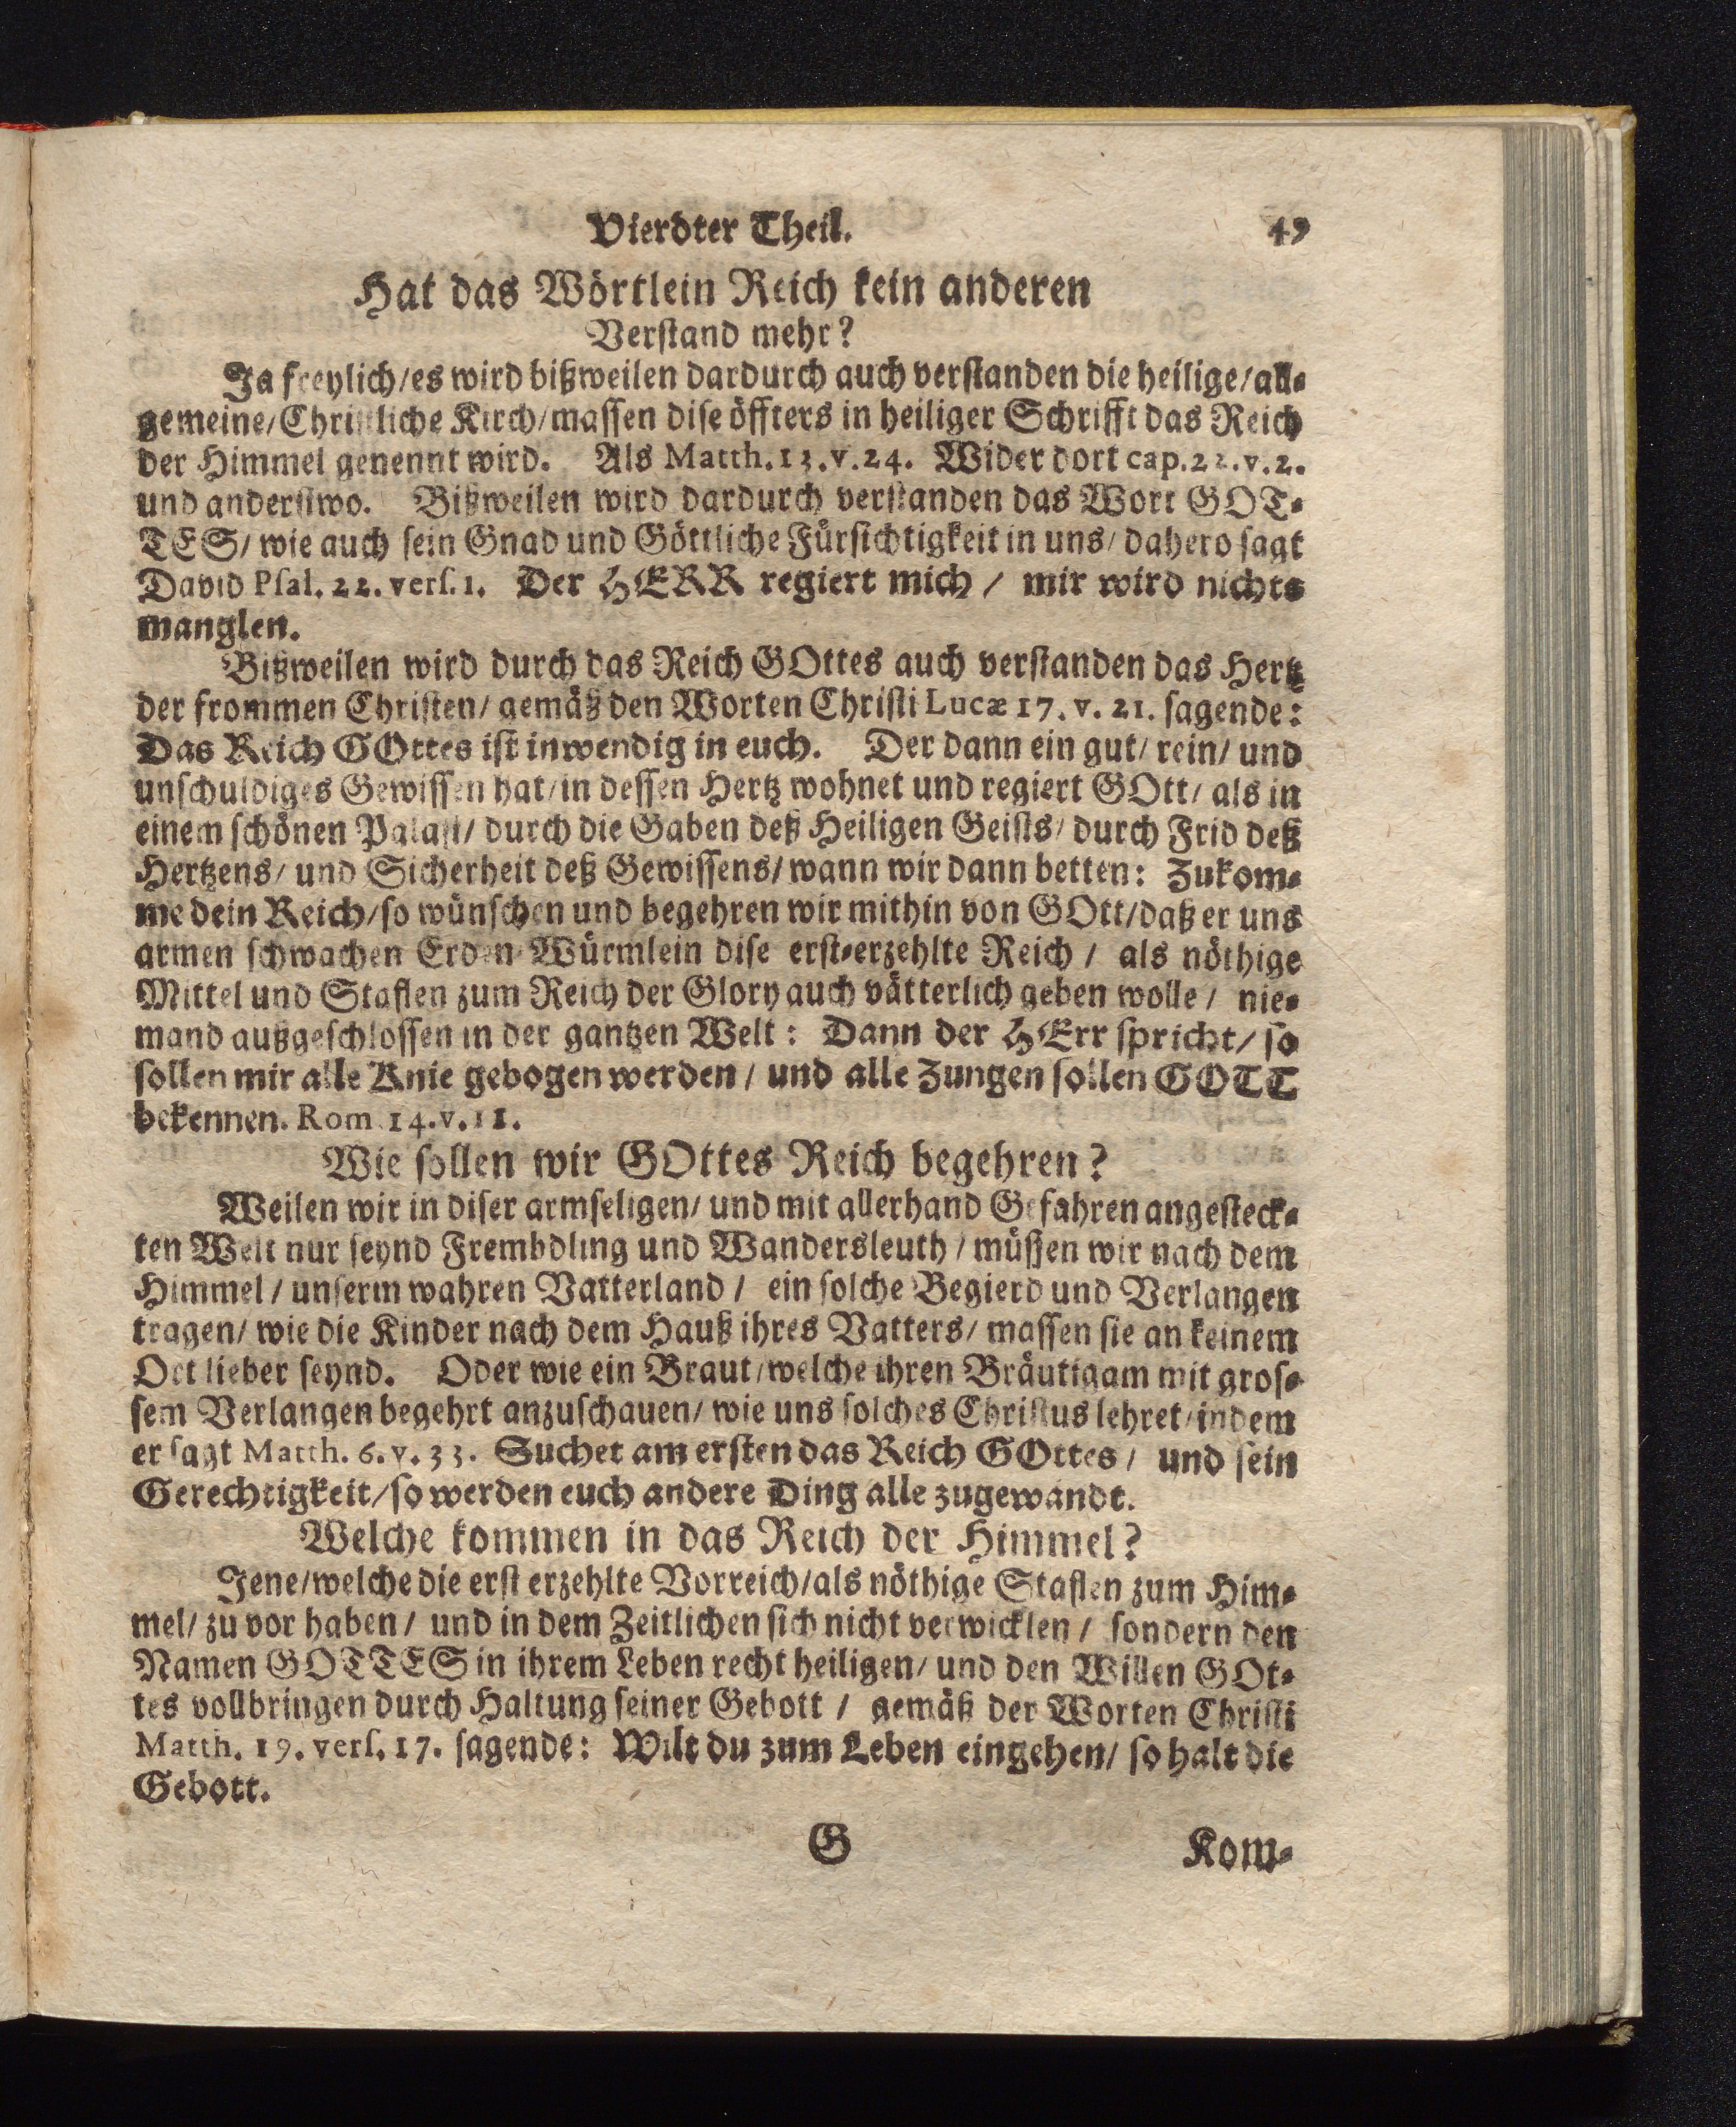 Vierdter Theil. 49
Hat das Wörtlein Reich kein anderen
Verstand mehr?
Ja freylich/es wird bißweilen dardurch auch verstanden die heilige/all-
gemeine/Christliche Kirch/massen dise öffters in heiliger Schrifft das Reich
der Himmel genennt wird. Als Matth.13.v.24. Wider dort cap.22.v.2.
und anderstwo. Bißweilen wird dardurch verstanden das Wort GOT-
TES/ wie auch sein Gnad und Göttliche Fürsichtigkeit in uns/ dahero sagt
David Psal. 22. vers. 1. Der HERR regiert mich / mir wird nichts
manglen.
Bißweilen wird durch das Reich GOttes auch verstanden das Hertz
der frommen Christen/ gemäß den Worten Christi Lucæ 17. v. 21. sagende:
Das Reich GOttes ist inwendig in euch. Der dann ein gut/ rein/ und
unschuldiges Gewissen hat/in dessen Hertz wohnet und regiert GOtt/ als in
einem schönen Palast/ durch die Gaben deß Heiligen Geists/ durch Frid deß
Hertzens/ und Sicherheit deß Gewissens/ wann wir dann betten: Zukom-
me dein Reich/so wünschen und begehren wir mithin von GOtt/daß er uns
armen schwachen Erden-Würmlein dise erst-erzehlte Reich / als nöthige
Mittel und Staflen zum Reich der Glory auch vätterlich geben wolle / nie-
mand außgeschlossen in der gantzen Welt: Dann der HErr spricht/ so
sollen mir alle Knie gebogen werden / und alle Zungen sollen GOTT
bekennen. Rom. 14.v.11.
Wie sollen wir GOttes Reich begehren?
Weilen wir in diser armseligen/ und mit allerhand Gefahren angesteck-
ten Welt nur seynd Frembdling und Wandersleuth / müssen wir nach dem
Himmel / unserm wahren Vatterland / ein solche Begierd und Verlangen
tragen/ wie die Kinder nach dem Hauß ihres Vatters/ massen sie an keinem
Ort lieber seynd. Oder wie ein Braut/welche ihren Bräutigam mit gros-
sem Verlangen begehrt anzuschauen/ wie uns solches Christus lehret/indem
er sagt Matth. 6. v. 33. Suchet am ersten das Reich GOttes / und sein
Gerechtigkeit/so werden euch andere Ding alle zugewandt.
Welche kommen in das Reich der Himmel?
Jene/welche die erst erzehlte Vorreich/als nöthige Staflen zum Him-
mel/ zu vor haben / und in dem Zeitlichen sich nicht verwicklen / sondern den
Namen GOTTES in ihrem Leben recht heiligen/ und den Willen GOt-
tes vollbringen durch Haltung seiner Gebott / gemäß der Worten Christi
Matth. 19. vers. 17. sagende: Wilt du zum Leben eingehen/ so halt die
Gebott.
G Kom-